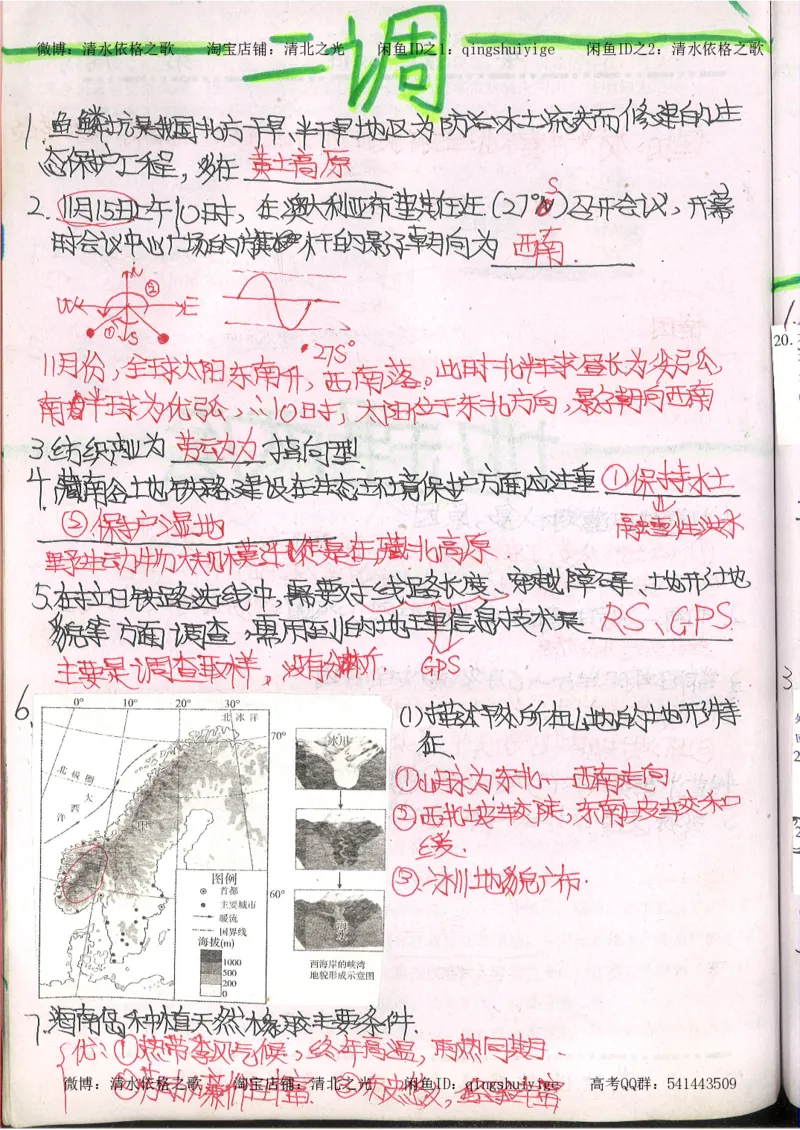 微博：清水依格之歌 淘宝店铺：清北之光 闲鱼ID之1：qingshuiyige 闲鱼ID之2：清水依格之歌
二调
1. 鱼鳞坑是我国北方干旱、半干旱地区为防治水土流失而修建的生
态保护工程，多在 黄土高原
2. 11月15日上午10时，在澳大利亚布里斯班(27°S)召开会议，开幕
时会议中心广场的旗杆的影子朝向为 西南.
N
W E
S
① ②
27°S
11月份，全球太阳东南升，西南落。此时北半球昼长为劣弧，
南半球为优弧，∴10时，太阳位于东北方向，影子朝向西南
3. 纺织产业为 劳动力 指向型.
4. 藏南谷地铁路建设在生态环境保护方面应注重 ①保持水土
②保护湿地
融雪性洪水
野生动物大规模迁徙是在藏北高原.
5. 在拉日铁路选线中，需要对线路长度、穿越障碍、土地形地
貌等方面调查，需用到的地理信息技术是 RS、GPS
主要是调查取样，没有分析.
GPS
6.
0° 10° 20° 30°
北冰洋
70°
北极圈
大
西
洋
60°
图例
首都
主要城市
暖流
国界线
海拔(m)
1000
500
200
0
冰川
海水
西海岸的峡湾
地貌形成示意图
(1)描述甲所在山地的地形特
征.
①山脉为东北—西南走向
②西北坡较陡，东南坡较和
缓.
③冰川地貌广布.
7. 海南岛种植天然橡胶主要条件.
优：①热带季风气候，终年高温，雨热同期
微博：清水依格之歌 淘宝店铺：清北之光 闲鱼ID：qingshuiyige 高考QQ群：541443509
20.
3